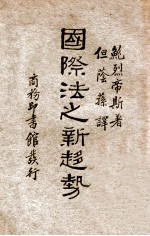 鮑烈帝斯著
但蔭蓀譯
國際法之新趨勢
商務印書館發行